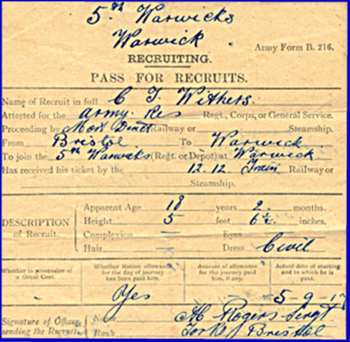 5th Warwicks
Warwick
Army Form B. 216.
RECRUITING.
PASS FOR RECRUITS.
Name of Recruit in full C J Withers.
Attested for the Army Res Regt., Corps, or General Service.
Proceeding by Most Direct Railway or Steamship.
From Bristol To Warwick
To join the 5th Warwicks (Regt. or Depot) at Warwick
Has received his ticket by the 12.12 Train Railway or
Steamship.
Apparent Age 18 years 2 months.
DESCRIPTION of Recruit. Height 5 feet 6½ inches.
Complexion — Eyes
Hair Dress Civil
Whether in possession of a Great Coat. Whether Ration allowance for the day of journey has been paid him. Amount of allowance for the journey paid him, if any. Actual date of starting and to which he is paid.
Yes 5-9-17
Signature of Officer sending the Recruit. Rogers Sergt
Rank for Bristol